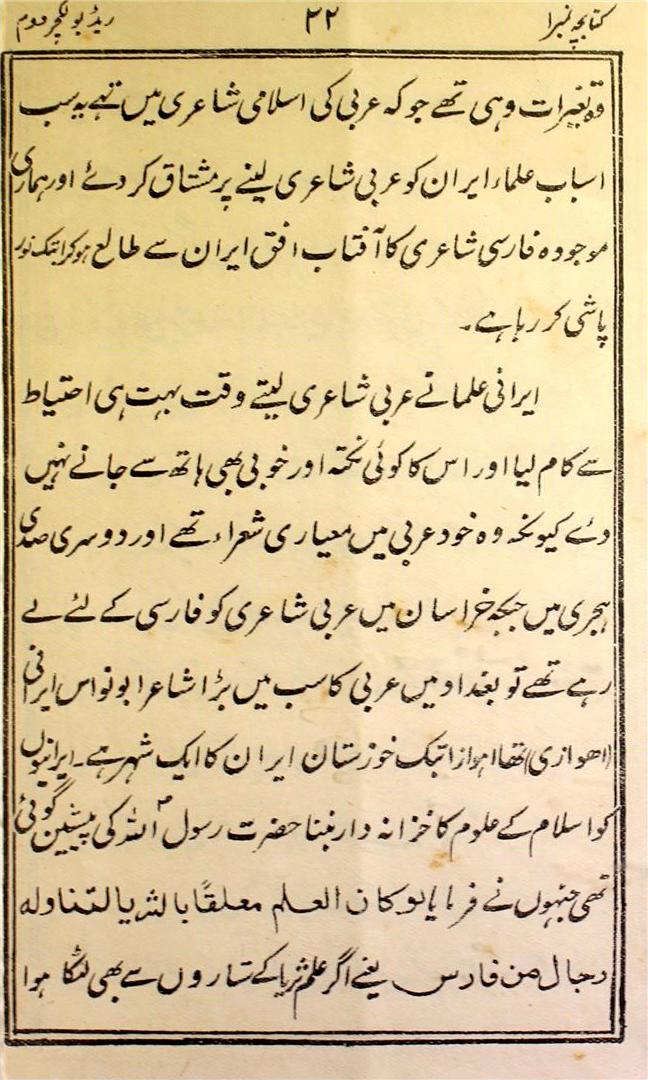 کتابچہ نمبرا ۲۲ ریڈیو لکچر دوم
وہ تغیرات وہی تھے جو کہ عربی کی اسلامی شاعری میں تھے یہ سب
اسباب علماء ایران کو عربی شاعری لینے پر مشتاق کر دئے اور ہماری
موجودہ فارسی شاعری کا آفتاب افق ایران سے طالع ہو کر ابتک نور
پاشی کر رہا ہے۔
ایرانی علما نے عربی شاعری لیتے وقت بہت ہی احتیاط
سے کام لیا اور اس کا کوئی نکتہ اور خوبی بھی ہاتھ سے جانے نہیں
دئے کیونکہ وہ خود عربی میں معیاری شعراء تھے اور دوسری صدی
ہجری میں جبکہ خراسان میں عربی شاعری کو فارسی کے لئے لے
رہے تھے تو بغداد میں عربی کا سب میں بڑا شاعر ابونواس ایرانی
(اھوازی) تھا اہواز ابتک خوزستان ایران کا ایک شہر ہے۔ ایرانیوں
کو اسلام کے علوم کا خزانہ دار بننا حضرت رسول اللہ ؐ کی پیشین گوئی
تھی جنہوں نے فرمایا لو کان العلم معلقًا بالثریا لتناولہ
رجال من فارس یعنے اگر علم ثریا کے ستاروں سے بھی لٹکا ہوا